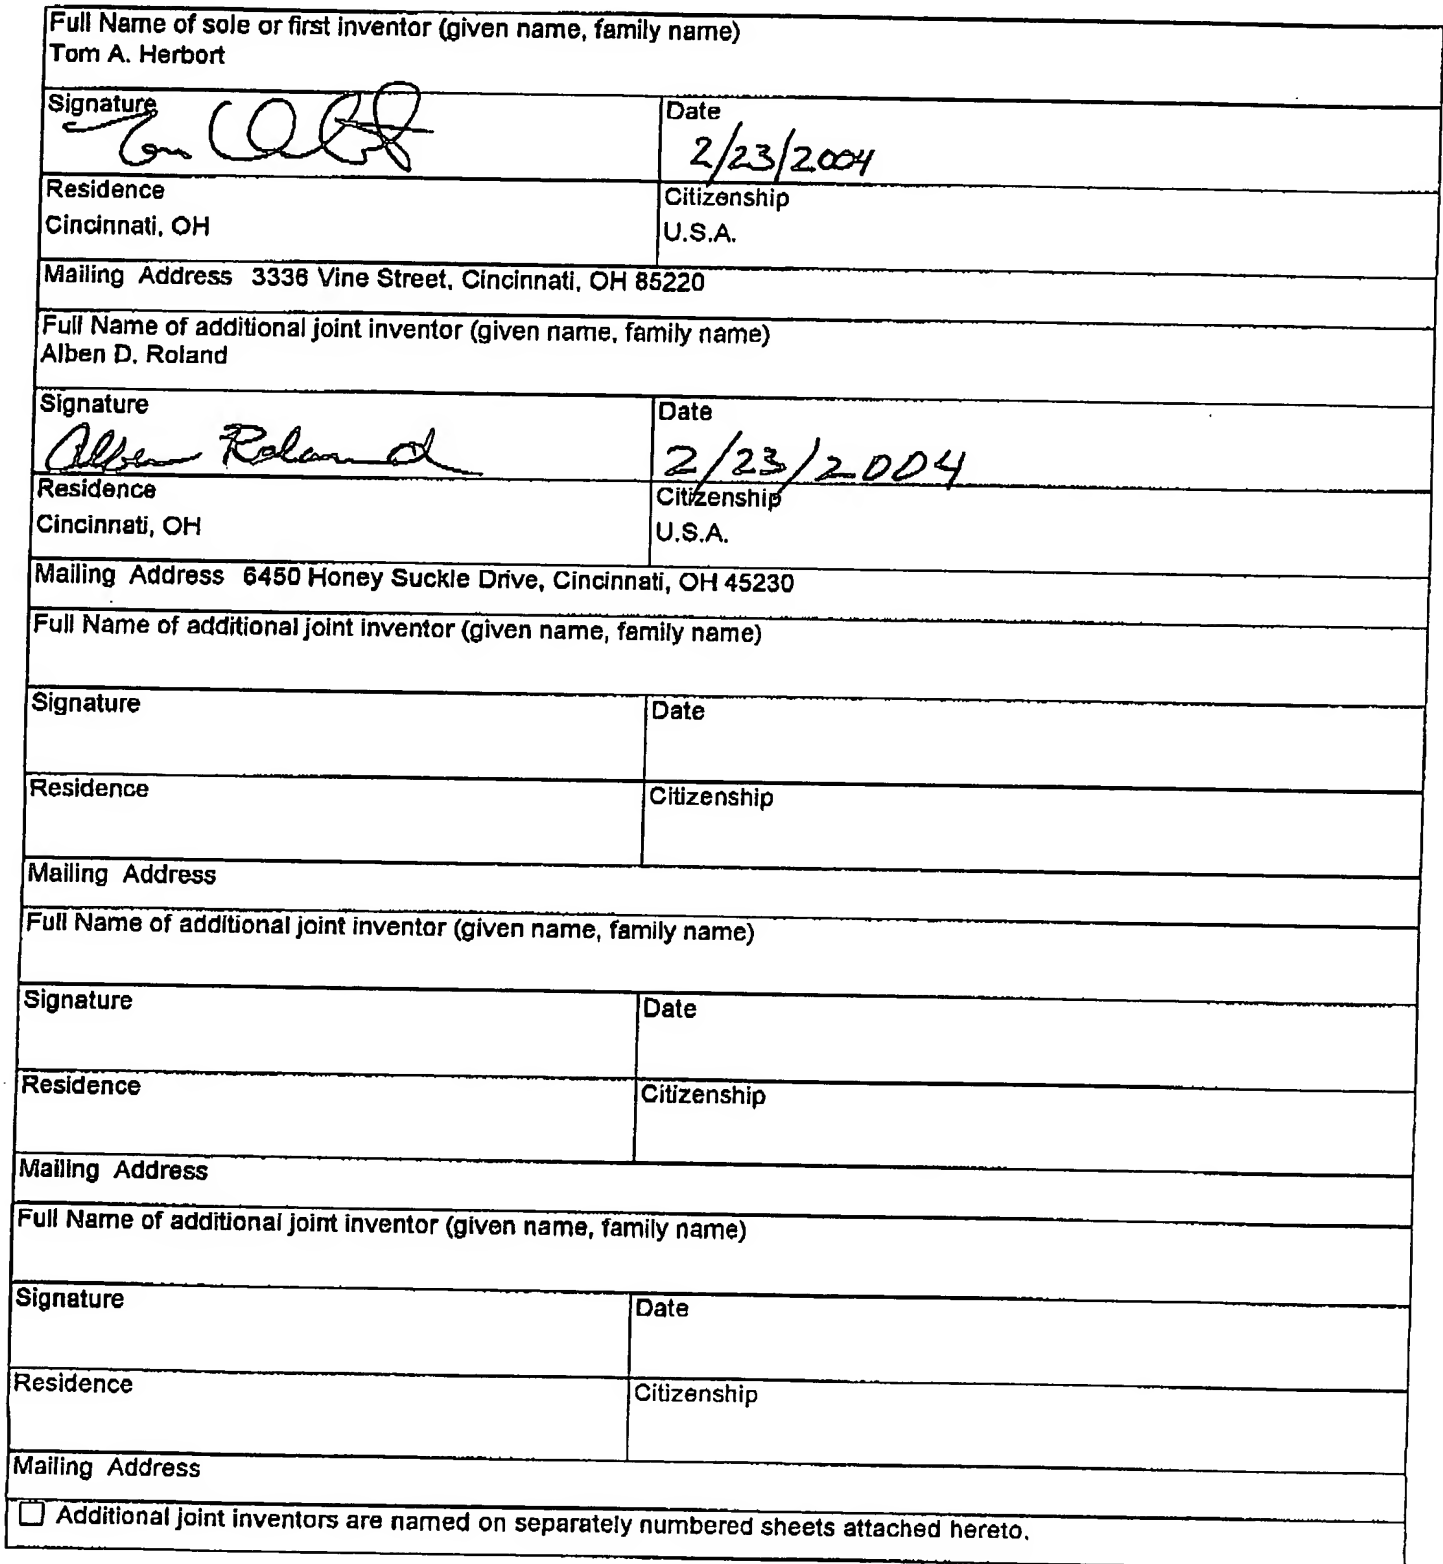 Full Name of sole or first inventor (given name, family name)
Tom A. Herbort
Signature
Date
2/23/2004
Residence
Cincinnati, OH
Citizenship
U.S.A.
Mailing Address 3336 Vine Street, Cincinnati, OH 85220
Full Name of additional joint inventor (given name, family name)
Alben D. Roland
Signature
Alben Roland
Date
2/23/2004
Residence
Cincinnati, OH
Citizenship
U.S.A.
Mailing Address 6450 Honey Suckle Drive, Cincinnati, OH 45230
Full Name of additional joint inventor (given name, family name)
Signature
Date
Residence
Citizenship
Mailing Address
Full Name of additional joint inventor (given name, family name)
Signature
Date
Residence
Citizenship
Mailing Address
Full Name of additional joint inventor (given name, family name)
Signature
Date
Residence
Citizenship
Mailing Address
Additional joint inventors are named on separately numbered sheets attached hereto.